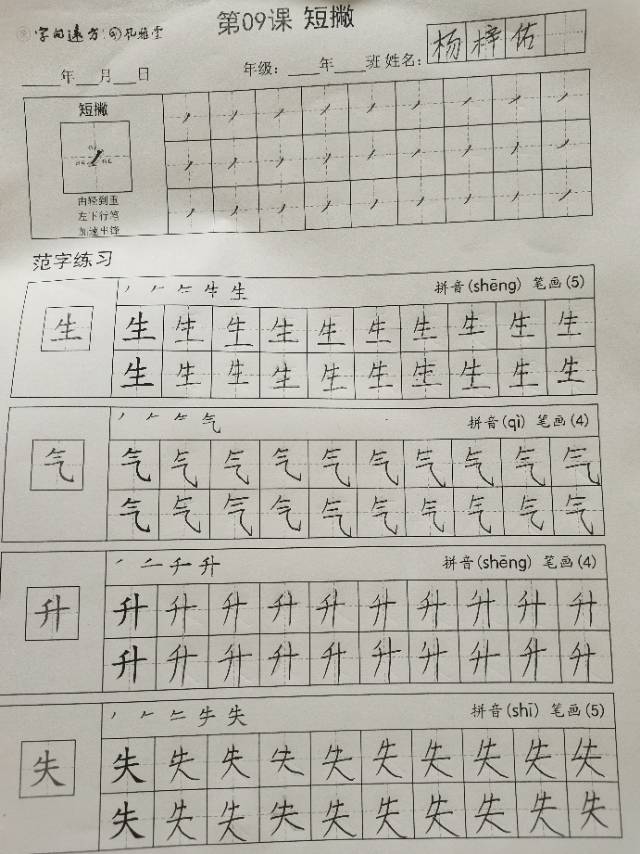 字的远方
第09课 短撇
____年___月___日 年级：____年____班 姓名：杨梓佑
短撇
由轻到重
左下行笔
加速出锋
范字练习
拼音(shēng) 笔画(5)
生 生 生 生 生 生 生 生 生 生 生
生 生 生 生 生 生 生 生 生 生
气 拼音(qì) 笔画(4)
气 气 气 气 气 气 气 气 气 气 气
气 气 气 气 气 气 气 气 气 气
升 拼音(shēng) 笔画(4)
升 升 升 升 升 升 升 升 升 升 升
升 升 升 升 升 升 升 升 升 升
失 拼音(shī) 笔画(5)
失 失 失 失 失 失 失 失 失 失 失
失 失 失 失 失 失 失 失 失 失